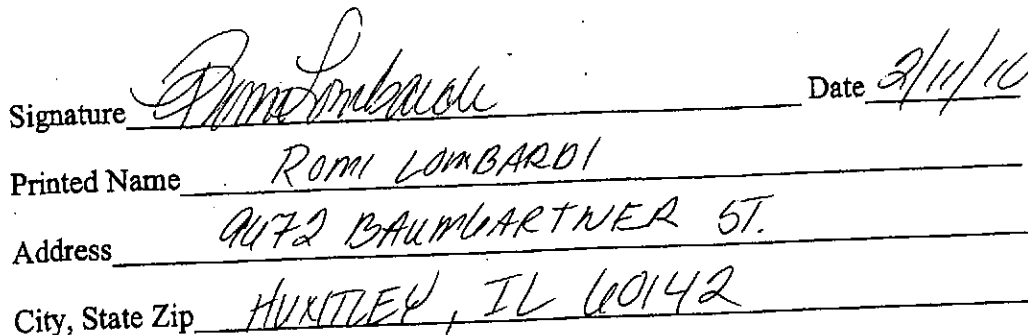 Signature Romi Lombardi Date 2/11/10
Printed Name ROMI LOMBARDI
Address 9472 BAUMGARTNER ST.
City, State Zip HUNTLEY, IL 60142